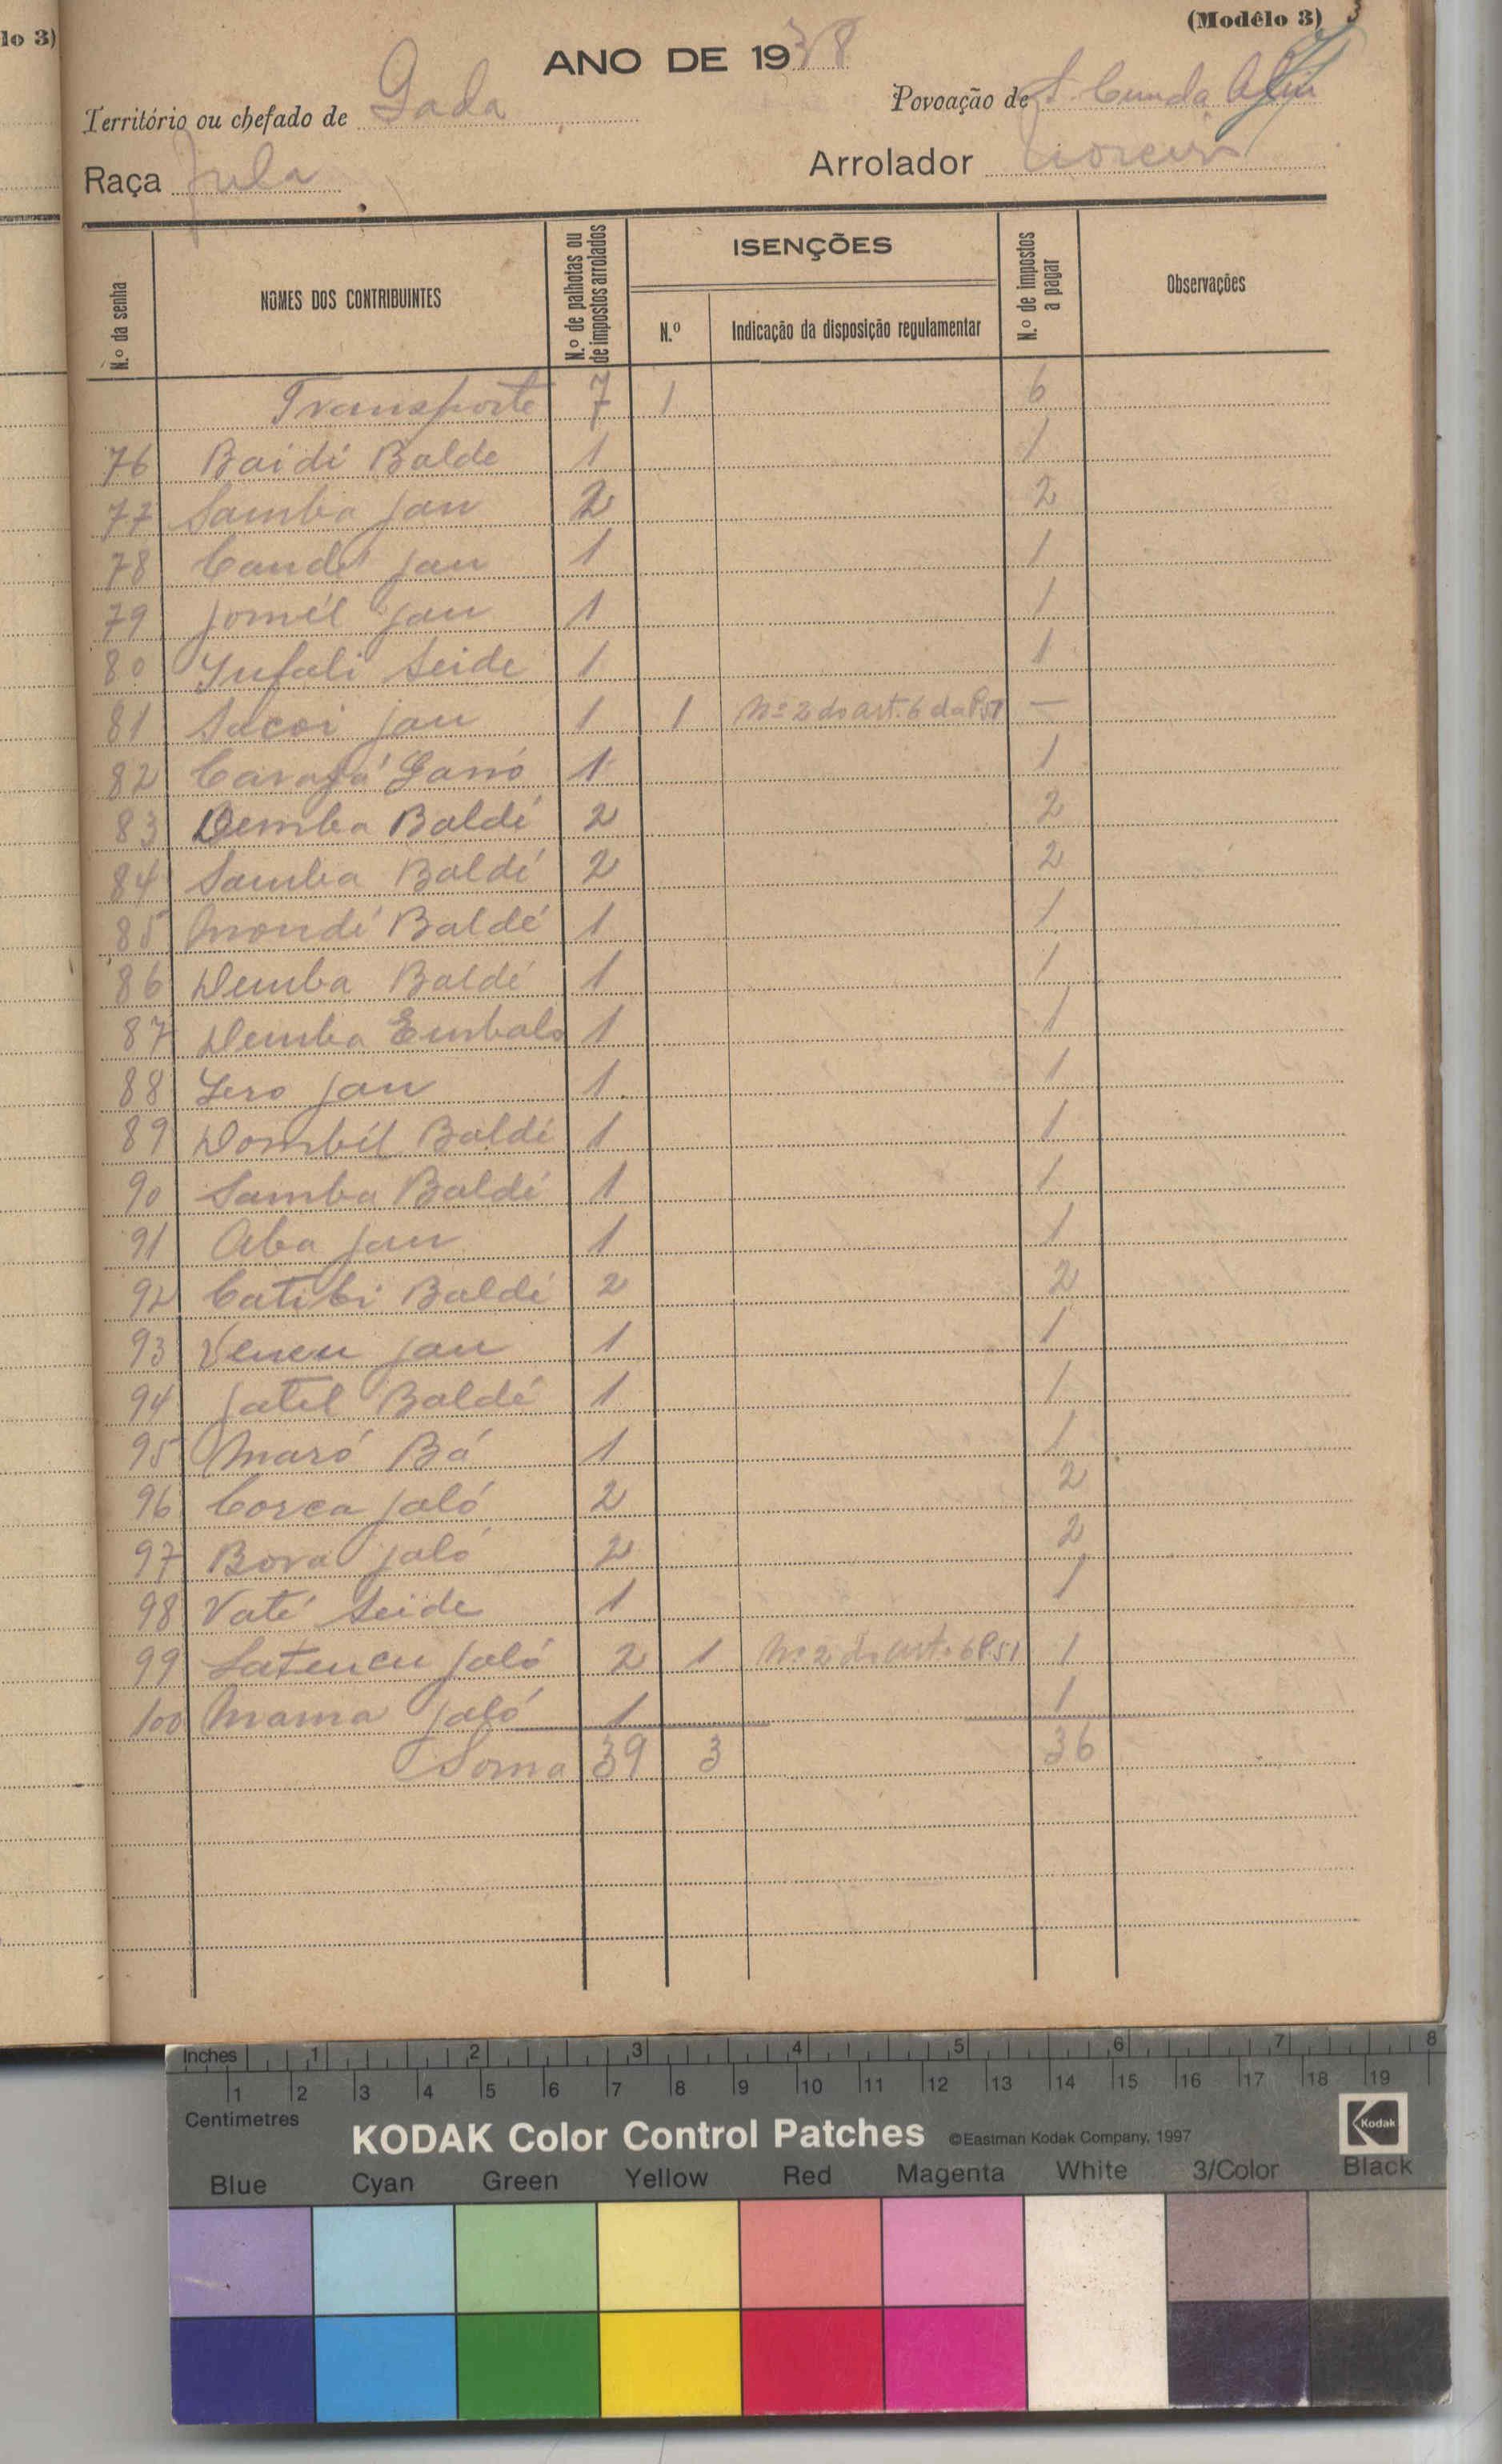 lo 3)
(Modêlo 3) 3
ANO DE 1938
Território ou chefado de Gada
Povoação de S. Cunda
Raça Fula
Arrolador
N.º da senha
NOMES DOS CONTRIBUINTES
N.º de palhotas ou de impostos arrolados
ISENÇÕES
N.º
Indicação da disposição regulamentar
N.º de impostos a pagar
Observações
Transporte 7 1 6
76 Baidi Balde 1 1
77 Samba Jau 2 2
78 Candé Jau 1 1
79 Jomél Jau 1 1
80 Jufali Seide 1 1
81 Sacoi Jau 1 1 Nº 2 do art. 6 da P51 —
82 Ganó 1 1
83 Demba Baldé 2 2
84 Samba Baldé 2 2
85 Baldé 1 1
86 Demba Baldé 1 1
87 Demba Embalo 1 1
88 Jero Jau 1 1
89 Dombél Baldé 1 1
90 Samba Baldé 1 1
91 Aba Jau 1 1
92 Catibi Baldé 2 2
93 Jau 1 1
94 Jatel Baldé 1 1
95 Maró Bá 1 1
96 Corca Jaló 2 2
97 Bora Jaló 2 2
98 Vaté Seide 1 1
99 Satencu Jaló 2 1 Nº 2 do art. 6 P51 1
100 Mama Jaló 1 1
Soma 39 3 36
Inches 1 2 3 4 5 6 7 8
1 2 3 4 5 6 7 8 9 10 11 12 13 14 15 16 17 18 19
Centimetres
KODAK Color Control Patches ©Eastman Kodak Company, 1997 Kodak
Blue Cyan Green Yellow Red Magenta White 3/Color Black